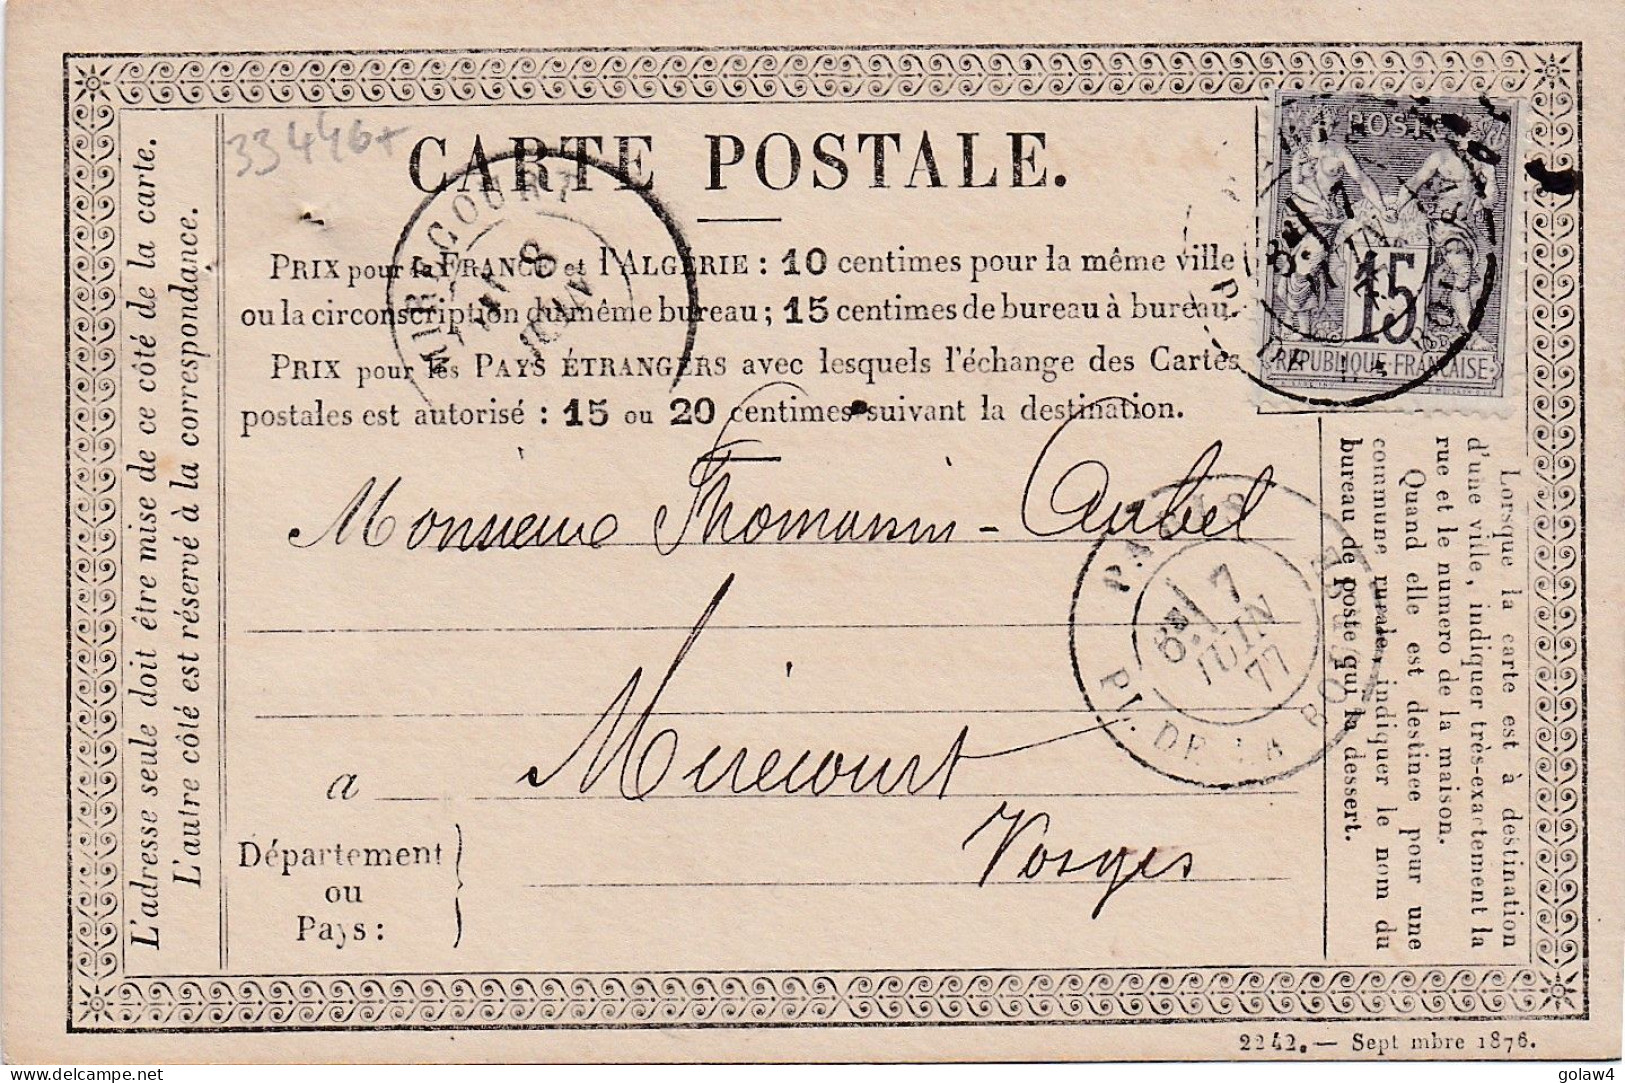 33446+
CARTE POSTALE.
PRIX pour la FRANCE et l'ALGÉRIE : 10 centimes pour la même ville
ou la circonscription du même bureau ; 15 centimes de bureau à bureau.
PRIX pour les PAYS ÉTRANGERS avec lesquels l'échange des Cartes
postales est autorisé : 15 ou 20 centimes suivant la destination.
MIRECOURT
8
JUIN
POSTE
15
REPUBLIQUE FRANÇAISE
8E/ 7
JUIN
PL. DE LA BOURSE
Monsieur Thomassin - Aubel
PARIS
8E/ 7
JUIN
77
PL. DE LA BOURSE
à Mirecourt
Département
ou
Pays :
Vosges
L'adresse seule doit être mise de ce côté de la carte.
L'autre côté est réservé à la correspondance.
Lorsque la carte est à destination
d'une ville, indiquer très-exactement la
rue et le numero de la maison.
Quand elle est destinée pour une
commune rurale, indiquer le nom du
bureau de poste qui la dessert.
2242. — Sept mbre 1876.
golaw4